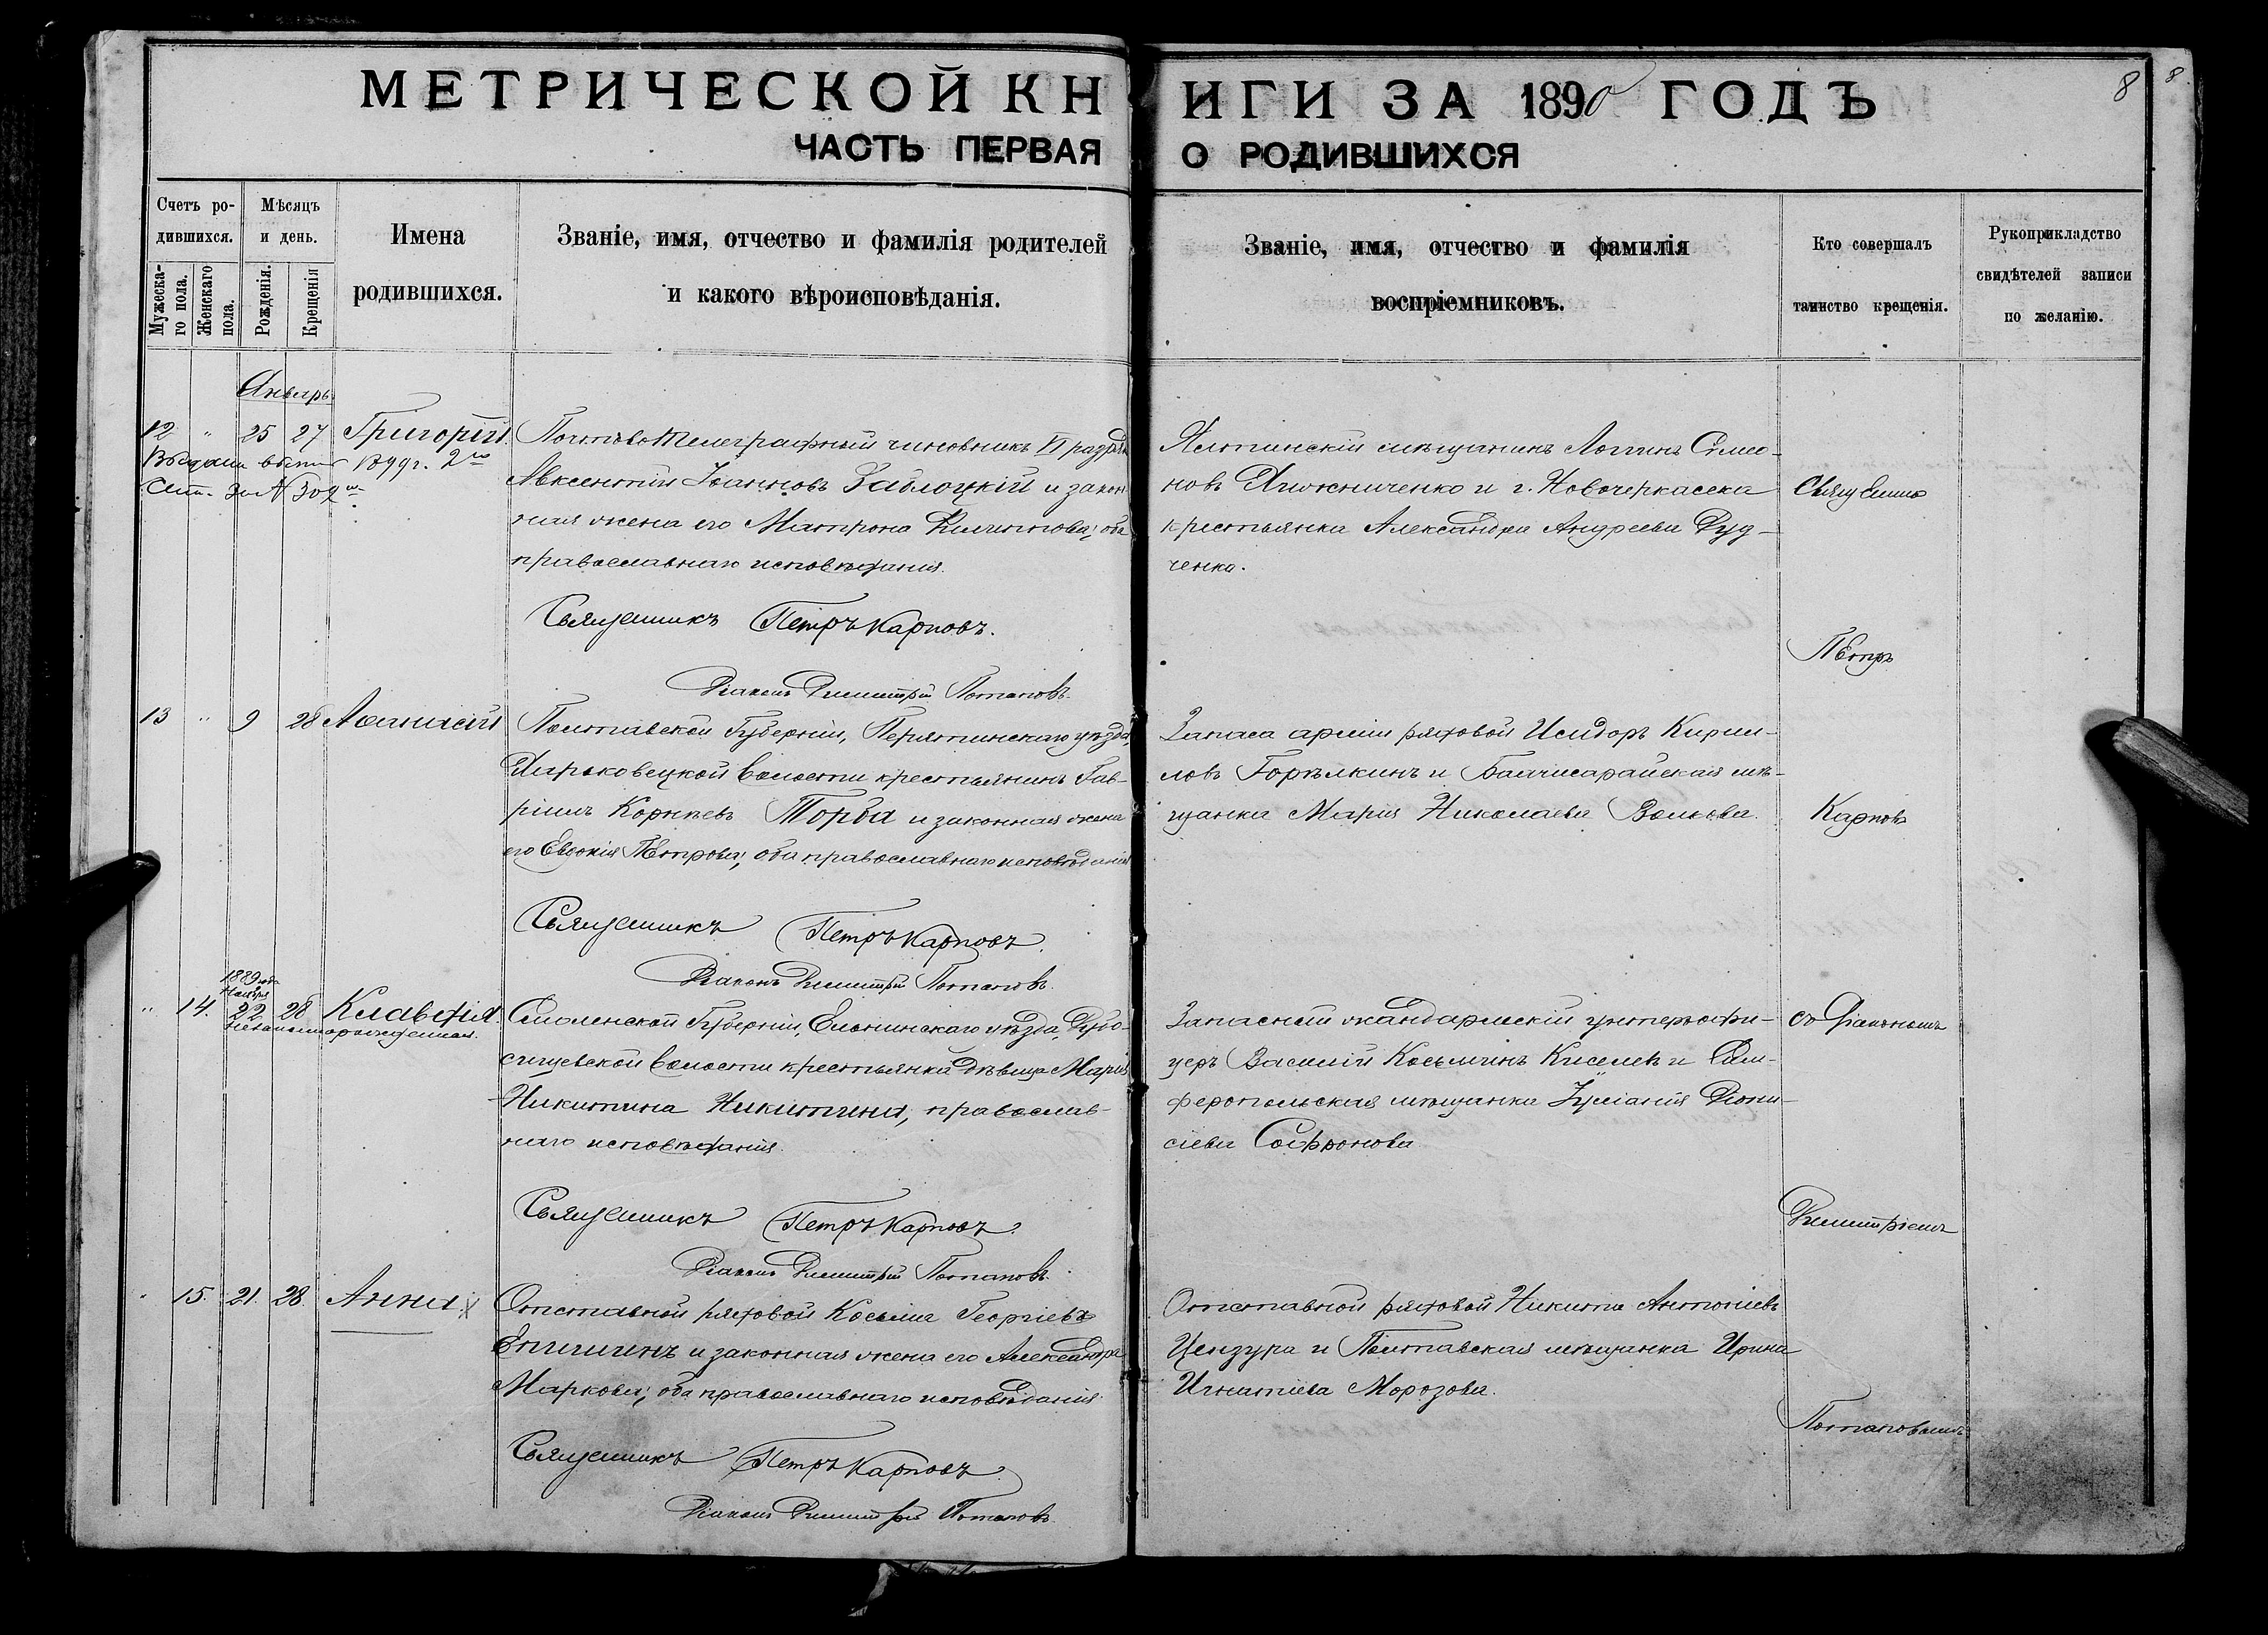 МЕТРИЧЕСКОЙ КНИГИ ЗА 1890 ГОДЪ
8 8
ЧАСТЬ ПЕРВАЯ О РОДИВШИХСЯ
Счетъ ро-
дившихся.
Мужеска-
го пола.
Женскаго
пола.
Мѣсяцъ
и день.
Рожденія.
Крещенія
Имена
родившихся.
Званіе, имя, отчество и фамилія родителей
и какого вѣроисповѣданія.
Званіе, имя, отчество и фамилія
воспріемниковъ.
Кто совершалъ
таинство крещенія.
Рукоприкладство
свидѣтелей записи
по желанію.
Январь
12 " 25 27 Григорій.
Сент. за № 302
Почтово Телеграфный чиновникъ VI разряда
Авксентій Іоанновъ Заблоцкій и закон
ная жена его Матрона Филиппова; оба
православнаго исповѣданія.
Священникъ Петръ Карповъ.
Діаконъ Димитрій Потаповъ.
Ялтинскій мѣщанинъ Логинъ Симео-
новъ и г. Новочеркасска
крестьянка Александра Андреева Дуд-
ченко.
13 " 9 28 Аѳанасій
Полтавской Губерніи, Пирятинскаго уѣзда,
Харьковецкой волости крестьянинъ Гав-
ріилъ Корнѣевъ Торба и законная жена
его Евдокія Петрова; оба православнаго исповѣданія
Священникъ Петръ Карповъ.
Діаконъ Димитрій Потаповъ.
Запаса арміи рядовой Исидоръ Кирил-
ловъ Горѣлкинъ и Бахчисарайская мѣ-
щанка Марія Николаева Волкова.
" 14. 1889 года Ноября 22 28 Клавдія.
незаконнорожденная.
Смоленской Губерніи, Ельнинскаго уѣзда,
волости крестьянка дѣвица Марія
Никитина Никитина, православ-
наго исповѣданія.
Священникъ Петръ Карповъ.
Діаконъ Димитрій Потаповъ.
Запасный жандармскій унтеръ-офи-
церъ Василій Косьминъ Киселевъ и Сим-
феропольская мѣщанка Іуліанія Діони-
сіева Софронова
" 15. 21. 28. Анна.
Отставной рядовой Косьма Георгіевъ
Епишинъ и законная жена его Александра
Маркова; оба православнаго исповѣданія
Священникъ Петръ Карповъ.
Діаконъ Димитрій Потаповъ.
Отставной рядовой Никита Антоніевъ
Цензура и Полтавская мѣщанка Ирина
Игнатіева Морозова.
Священникъ
Петръ
Карповъ
съ Діакономъ
Димитріемъ
Потаповымъ